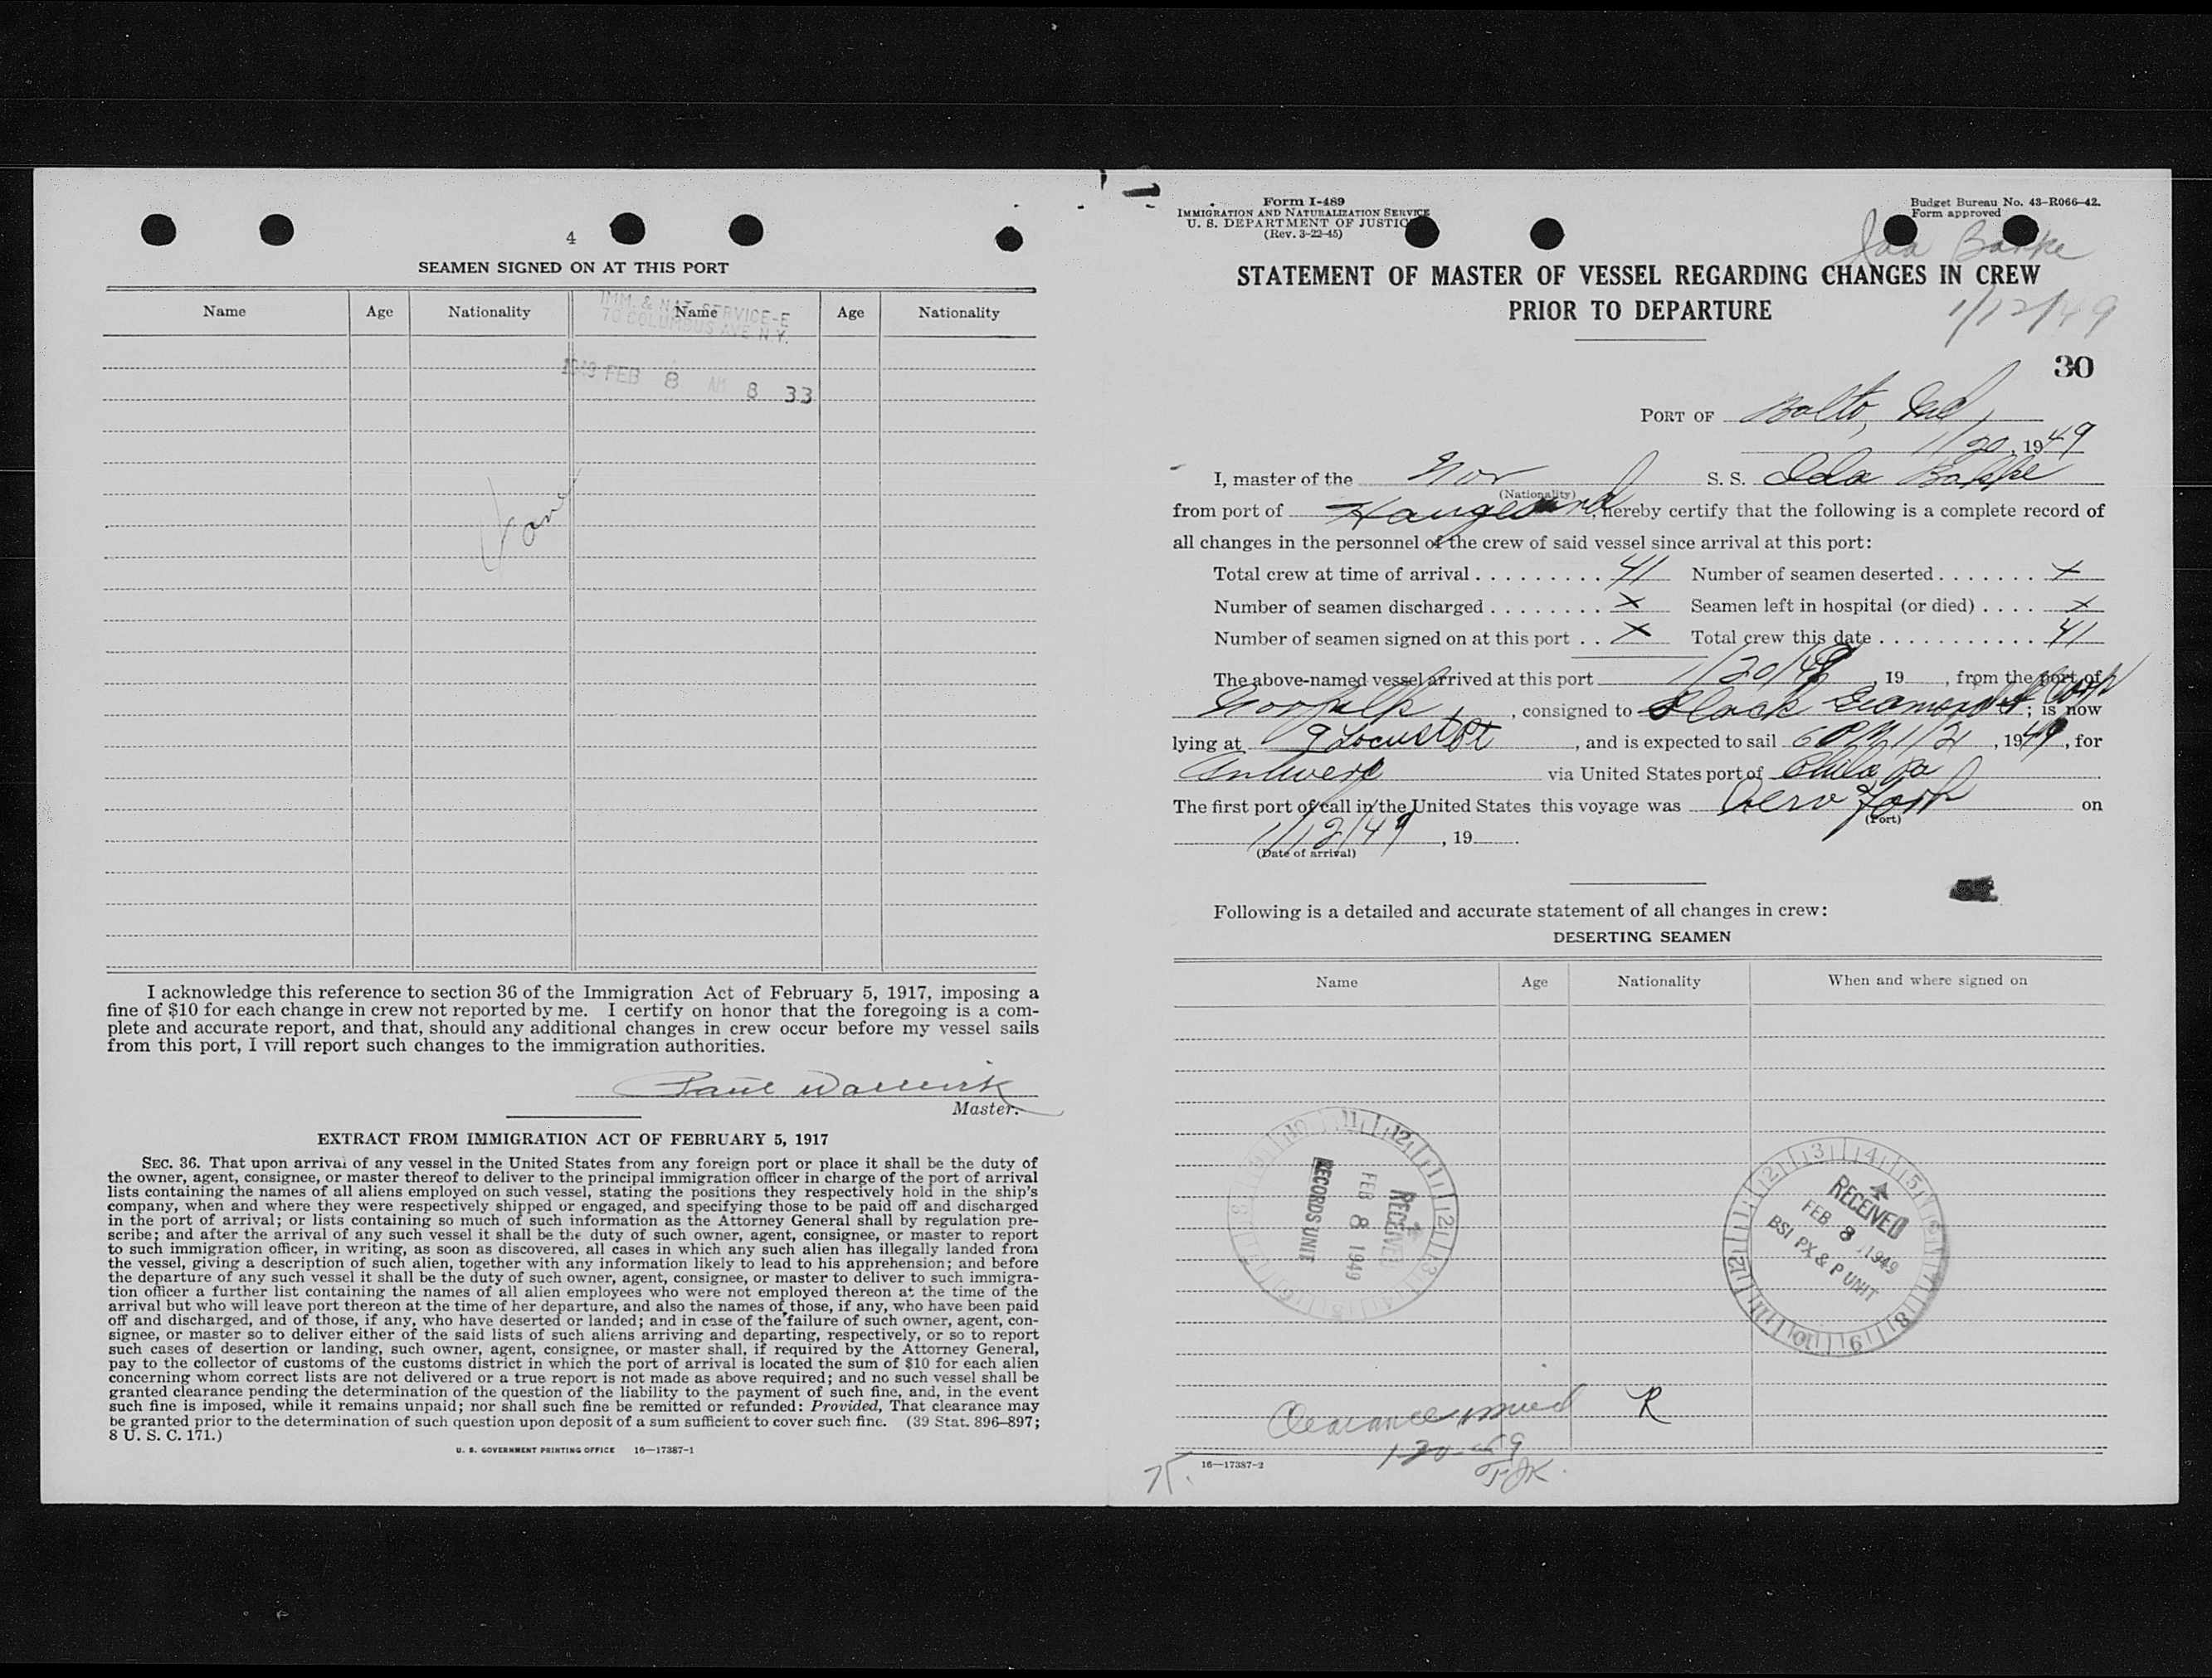 4
SEAMEN SIGNED ON AT THIS PORT
Name Age Nationality Name Age Nationality
IMM. & NAT. SERVICE-E
70 COLUMBUS AVE. N.Y.
1949 FEB 8 AM 8 33
I acknowledge this reference to section 36 of the Immigration Act of February 5, 1917, imposing a
fine of $10 for each change in crew not reported by me. I certify on honor that the foregoing is a com-
plete and accurate report, and that, should any additional changes in crew occur before my vessel sails
from this port, I will report such changes to the immigration authorities.
Paul
Master.
EXTRACT FROM IMMIGRATION ACT OF FEBRUARY 5, 1917
SEC. 36. That upon arrival of any vessel in the United States from any foreign port or place it shall be the duty of
the owner, agent, consignee, or master thereof to deliver to the principal immigration officer in charge of the port of arrival
lists containing the names of all aliens employed on such vessel, stating the positions they respectively hold in the ship's
company, when and where they were respectively shipped or engaged, and specifying those to be paid off and discharged
in the port of arrival; or lists containing so much of such information as the Attorney General shall by regulation pre-
scribe; and after the arrival of any such vessel it shall be the duty of such owner, agent, consignee, or master to report
to such immigration officer, in writing, as soon as discovered, all cases in which any such alien has illegally landed from
the vessel, giving a description of such alien, together with any information likely to lead to his apprehension; and before
the departure of any such vessel it shall be the duty of such owner, agent, consignee, or master to deliver to such immigra-
tion officer a further list containing the names of all alien employees who were not employed thereon at the time of the
arrival but who will leave port thereon at the time of her departure, and also the names of those, if any, who have been paid
off and discharged, and of those, if any, who have deserted or landed; and in case of the failure of such owner, agent, con-
signee, or master so to deliver either of the said lists of such aliens arriving and departing, respectively, or so to report
such cases of desertion or landing, such owner, agent, consignee, or master shall, if required by the Attorney General,
pay to the collector of customs of the customs district in which the port of arrival is located the sum of $10 for each alien
concerning whom correct lists are not delivered or a true report is not made as above required; and no such vessel shall be
granted clearance pending the determination of the question of the liability to the payment of such fine, and, in the event
such fine is imposed, while it remains unpaid; nor shall such fine be remitted or refunded: Provided, That clearance may
be granted prior to the determination of such question upon deposit of a sum sufficient to cover such fine. (39 Stat. 896–897;
8 U. S. C. 171.)
U. S. GOVERNMENT PRINTING OFFICE 16—17387-1
Form I-489
IMMIGRATION AND NATURALIZATION SERVICE
U. S. DEPARTMENT OF JUSTICE
(Rev. 3-22-45)
Budget Bureau No. 43-R066-42.
Form approved
Ida Bakke
STATEMENT OF MASTER OF VESSEL REGARDING CHANGES IN CREW
PRIOR TO DEPARTURE
1/12/49
30
PORT OF Balto, Md
1/20, 1949
I, master of the Nor S. S. Ida Bakke
(Nationality)
from port of Haugesund, hereby certify that the following is a complete record of
all changes in the personnel of the crew of said vessel since arrival at this port:
Total crew at time of arrival 41 Number of seamen deserted X
Number of seamen discharged X Seamen left in hospital (or died) X
Number of seamen signed on at this port X Total crew this date 41
The above-named vessel arrived at this port 1/20/49, 19 , from the port of
Norfolk, consigned to Black Diamond SS Corp; is now
lying at 9 Locust Pt, and is expected to sail 6 PM 1/21, 1949, for
Antwerp via United States port of Phila Pa
The first port of call in the United States this voyage was New York on
(Port)
1/12/49, 19 .
(Date of arrival)
Following is a detailed and accurate statement of all changes in crew:
DESERTING SEAMEN
Name Age Nationality When and where signed on
RECEIVED
FEB 8 1949
RECORDS UNIT
RECEIVED
FEB 8 1949
BSI PX & P UNIT
Clearance issued R
1-20-49
TJK.
16—17387-2